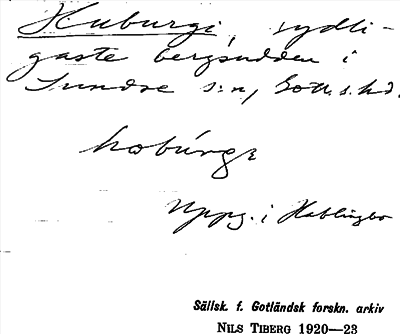 Huburgi, sydli-
gaste bergsudden i
Sundre s:n, Gotl. s. hd.
hobúrgɛ
Uppg. i Hablingbo
Sällsk. f. Gotländsk forskn. arkiv
NILS TIBERG 1920—23